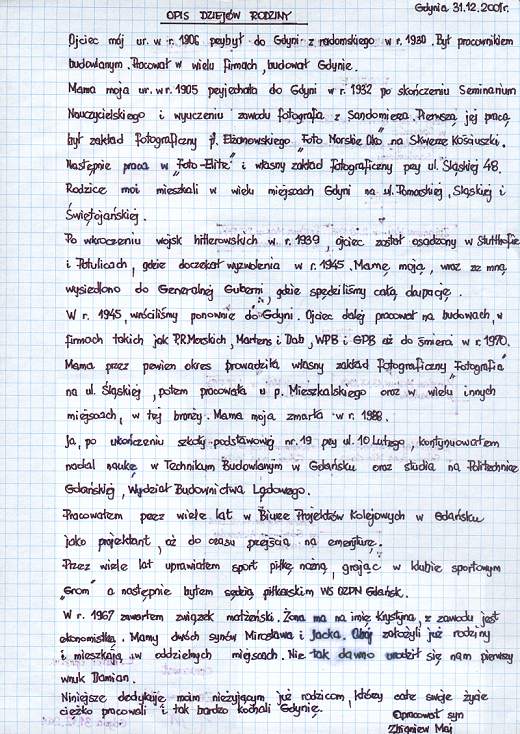 Gdynia 31.12.2001r.
OPIS DZIEJÓW RODZINY
Ojciec mój ur. w r. 1906 przybył do Gdyni z radomskiego w r. 1930. Był pracownikiem
budowlanym. Pracował w wielu firmach, budował Gdynię.
Mama moja ur. w r. 1905 przyjechała do Gdyni w r. 1932 po skończeniu Seminarium
Nauczycielskiego i wyuczeniu zawodu fotografa z Sandomierza. Pierwszą jej pracą
był zakład fotograficzny p. Elżanowskiego "Foto Morskie Oko" na Skwerze Kościuszki.
Następnie praca w "Foto-Elite" i własny zakład fotograficzny przy ul. Śląskiej 48.
Rodzice moi mieszkali w wielu miejscach Gdyni na ul. Pomorskiej, Śląskiej i
Świętojańskiej.
Po wkroczeniu wojsk hitlerowskich w r. 1939, ojciec został osadzony w Stutthofie
i Potulicach, gdzie doczekał wyzwolenia w r. 1945. Mamę moją, wraz ze mną
wysiedlono do Generalnej Guberni, gdzie spędziliśmy całą okupację.
W r. 1945, wróciliśmy ponownie do Gdyni. Ojciec dalej pracował na budowach, w
firmach takich jak P.R.Morskich, Martens i Dab, WPB i GPB aż do śmierci w r. 1970.
Mama przez pewien okres prowadziła własny zakład fotograficzny "Fotografia"
na ul. Śląskiej, potem pracowała u p. Mieszkalskiego oraz w wielu innych
miejscach, w tej branży. Mama moja zmarła w r. 1988.
Ja, po ukończeniu szkoły podstawowej nr. 19 przy ul. 10 Lutego, kontynuowałem
nadal naukę w Technikum Budowlanym w Gdańsku oraz studia na Politechnice
Gdańskiej, Wydział Budownictwa Lądowego.
Pracowałem przez wiele lat w Biurze Projektów Kolejowych w Gdańsku
jako projektant, aż do czasu przejścia na emeryturę.
Przez wiele lat uprawiałem sport piłkę nożną, grając w klubie sportowym
"Grom" a następnie byłem sędzią piłkarskim WS OZPN Gdańsk.
W r. 1967 zawarłem związek małżeński. Żona ma na imię Krystyna, z zawodu jest
ekonomistką. Mamy dwóch synów Mirosława i Jacka. Obaj założyli już rodziny
i mieszkają w oddzielnych miejscach. Nie tak dawno urodził się nam pierwszy
wnuk Damian.
Niniejsze dedykuję moim nieżyjącym już rodzicom, którzy całe swoje życie
ciężko pracowali i tak bardzo kochali Gdynię.
Opracował syn
Zbigniew Maj